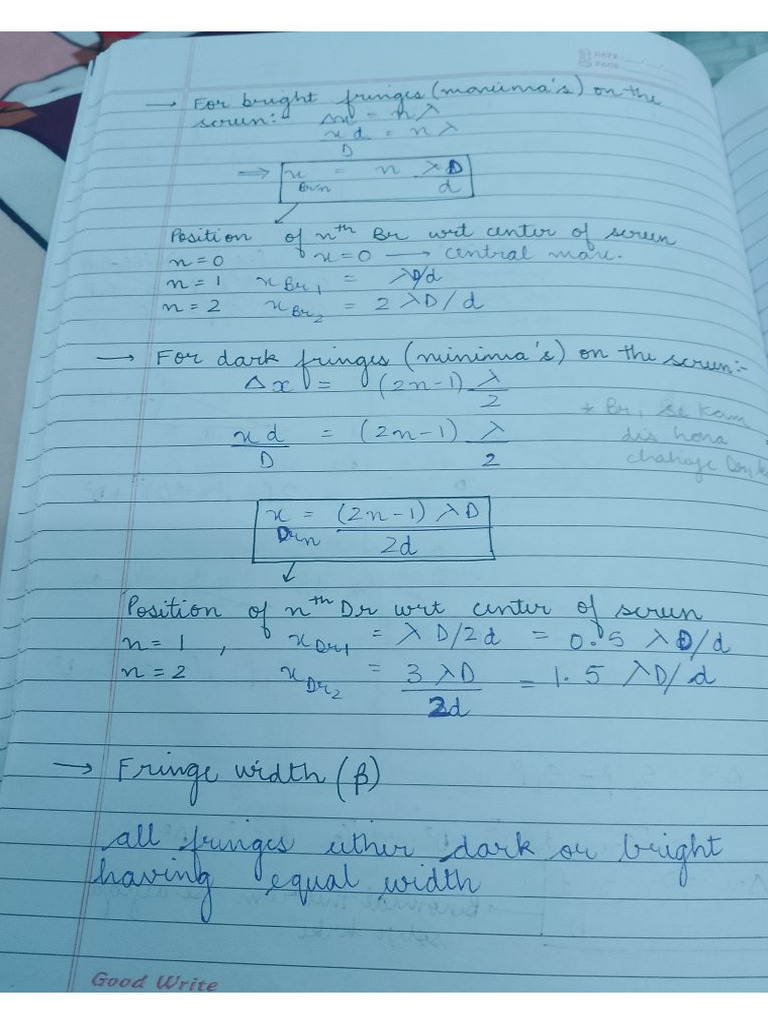 DATE: __/__/__
PAGE
→ For bright fringes (maxima's) on the
screen: Δx = nλ
xd/D = nλ
⇒ x Brn = n λD/d
Position of nth Br wrt center of screen
n=0 x=0 → central max.
n=1 xBr1 = λD/d
n=2 xBr2 = 2λD/d
→ For dark fringes (minima's) on the screen:-
Δx = (2n-1) λ/2
xd/D = (2n-1) λ/2
* Br1 se kam
dis hona
chahoge
x Drn = (2n-1) λD/2d
Position of nth Dr wrt center of screen
n=1, xDr1 = λD/2d = 0.5 λD/d
n=2 xDr2 = 3λD/2d = 1.5 λD/d
→ Fringe width (β)
all fringes either dark or bright
having equal width
Good Write